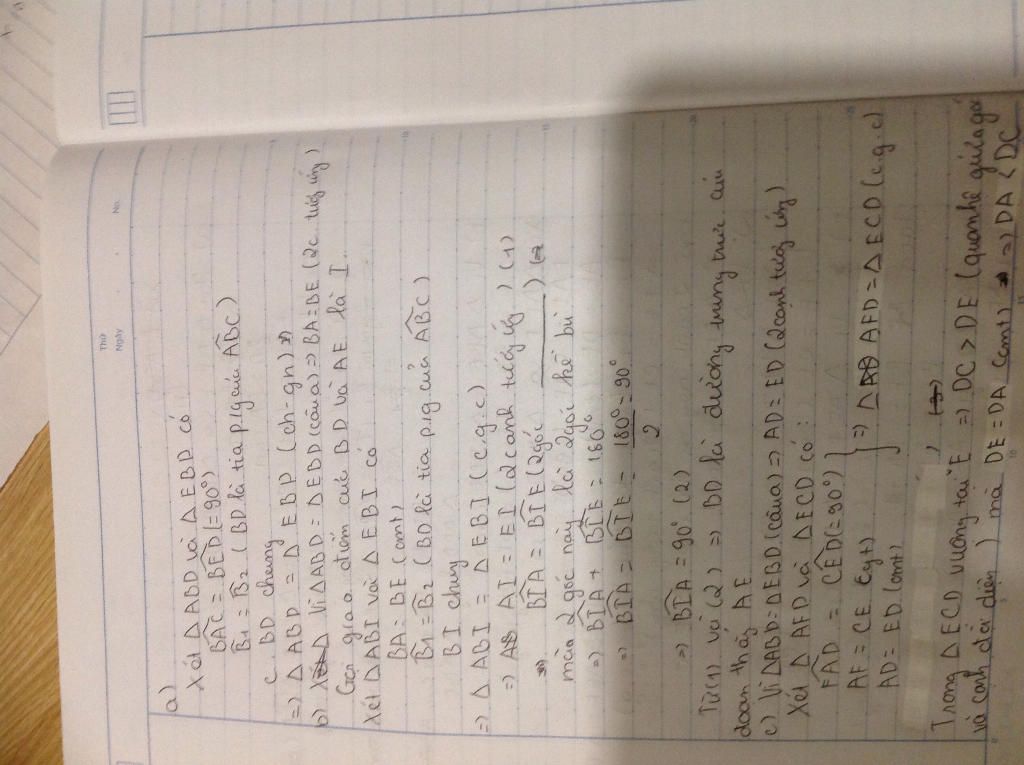 Thứ
Ngày
No.
a)
Xét Δ ABD và Δ EBD có
BAC = BED (=90°)
B1 = B2 (BD là tia p.g của ABC)
BD chung
=> Δ ABD = Δ EBD (ch-gn)
b) Vì Δ ABD = Δ EBD (câu a) => BA = BE (2c tướg ứg)
Gọi giao điểm của BD và AE là I
Xét Δ ABI và Δ EBI có
BA = BE (cmt)
B1 = B2 (BD là tia p.g của ABC)
BI chug
=> Δ ABI = Δ EBI (c.g.c)
=> AI = EI (2 cạnh tướg ứg) (1)
BIA = BIE (2góc )
mà 2 góc này là 2góc kề bù
=> BIA + BIE = 180°
=> BIA = BIE = 180°/2 = 90°
=> BIA = 90° (2)
Từ (1) và (2) => BD là đường trung trực của
đoạn thẳg AE
c) Vì ΔABD = ΔEBD (câu a) => AD = ED (2cạnh tướg ứg)
Xét Δ AFD và Δ ECD có :
FAD = CED (=90°)
AF = CE (gt)
AD = ED (cmt)
=> Δ AFD = Δ ECD (c.g.c)
Trong Δ ECD vuông tại E => DC > DE (quan hệ giữa góc
và cạnh đối diện) mà DE = DA (cmt) => DA < DC